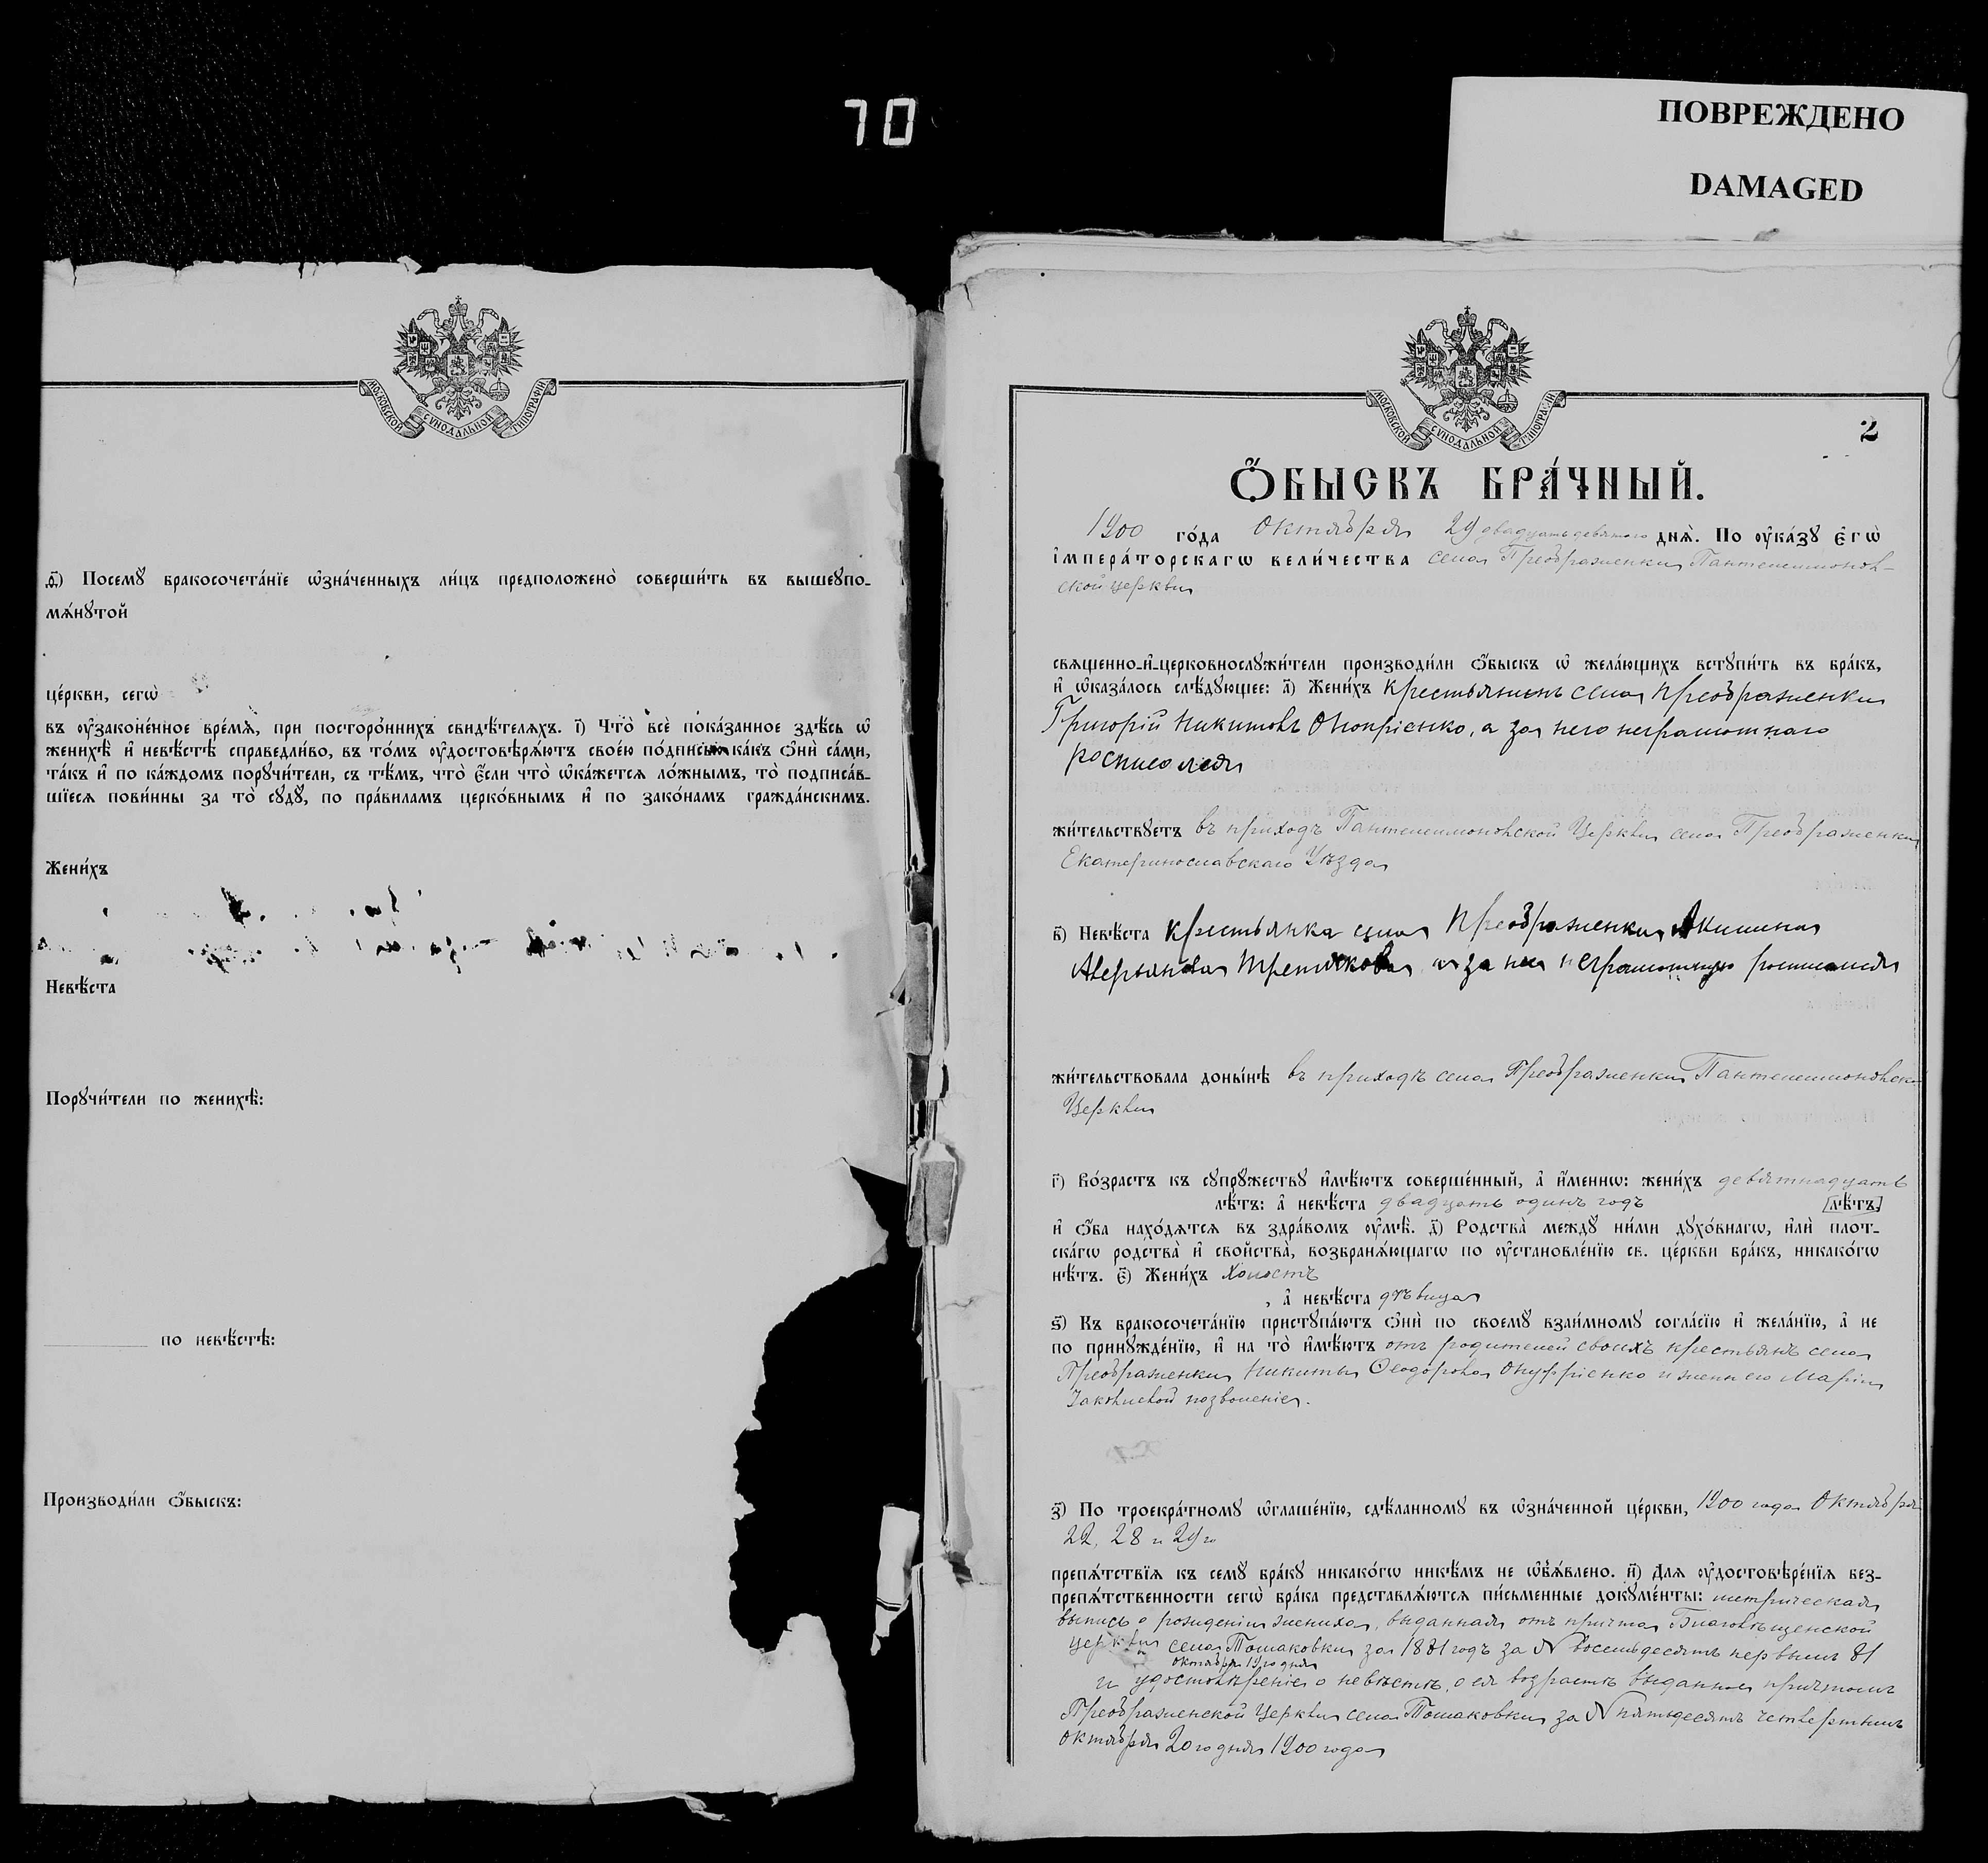 70
ПОВРЕЖДЕНО
DAMAGED
МОСКОВСКОЙ СѴНОДАЛЬНОЙ ТИПОГРАФІИ
ѳ҃) Посемꙋ̀ бракосочета́нїе ѡ҆зна́ченныхъ ли́цъ предположено̀ соверши́ть въ вышеꙋпо-
мѧ́нꙋтой
це́ркви, сегѡ̀
въ ᲂу҆зако́ненное вре́мѧ, при посторо́ннихъ свидѣ́телѧхъ. і҃) Что̀ всѐ пока́занное здѣ́сь ѡ҆
женихѣ̀ и҆ невѣ́стѣ справедли́во, въ то́мъ ᲂу҆достовѣрѧ́ютъ свое́ю по́дписью ка́къ ѻ҆нѝ са́ми,
та́къ и҆ по ка́ждомъ порꙋчи́тели, съ тѣ́мъ, что̀ є҆́сли что̀ ѡ҆ка́жетсѧ ло́жнымъ, то̀ подписа́в-
шїесѧ пови́нны за то̀ сꙋдꙋ̀, по пра́виламъ церко́внымъ и҆ по зако́намъ гражда́нскимъ.
Жени́хъ
Невѣ́ста
Порꙋчи́тели по женихѣ̀:
по невѣ́стѣ:
Производи́ли ѻ҆́быскъ:
МОСКОВСКОЙ СѴНОДАЛЬНОЙ ТИПОГРАФІИ
2
Ѻ҆́БЫСКЪ БРА́ЧНЫЙ.
1900 го́да Октября 29 двадцать девятаго днѧ̀. По ᲂу҆ка́зꙋ Є҆гѡ̀
і҆мпера́торскагѡ вели́чества села Преображенки Пантелеимонов-
ской церкви
свѧщенно-и҆-церковнослꙋжи́тели производи́ли ѻ҆́быскъ ѡ҆ жела́ющихъ встꙋпи́ть въ бра́къ,
и҆ ѡ҆каза́лось слѣ́дꙋющее: а҃) Жени́хъ крестьянинъ села Преображенки
Григорій Никитовъ Онопріенко, а за него неграмотнаго
росписался
жи́тельствꙋетъ въ приходѣ Пантелеимоновской Церкви села Преображенки
Екатеринославскаго Уѣзда
в҃) Невѣ́ста крестьянка села Преображенки Акилина
Аверьянова Третякова а за нея неграмотную росписался
жи́тельствовала доны́нѣ въ приходѣ села Преображенки Пантелеимоновской
Церкви
г҃) Во́зрастъ къ сꙋпрꙋ́жествꙋ и҆мѣ́ютъ соверше́нный, а҆ и҆́меннѡ: жени́хъ девятнадцать
лѣ́тъ: а҆ невѣ́ста двадцать одинъ годъ [лѣ́тъ]
и҆ ѻ҆́ба нахо́дѧтсѧ въ здра́вомъ ᲂу҆мѣ̀. д҃) Родства̀ междꙋ̀ ни́ми дꙋхо́внагѡ, и҆лѝ плот-
ска́гѡ родства̀ и҆ свойства̀, возбранѧ́ющагѡ по ᲂу҆становле́нїю св. це́ркви бра́къ, никако́гѡ
нѣ́тъ. є҃) Жени́хъ холостъ
, а҆ невѣ́ста дѣвица
ѕ҃) Къ бракосочета́нїю пристꙋпа́ютъ ѻ҆нѝ по своемꙋ̀ взаи́мномꙋ согла́сїю и҆ жела́нїю, а҆ не
по принꙋжде́нїю, и҆ на то̀ и҆мѣ́ютъ отъ родителей своихъ крестьянъ села
Преображенки Никиты Ѳеодорова Онуфріенко и жены его Маріи
Іаковлевой позволеніе.
з҃) По троекра́тномꙋ ѡ҆глаше́нїю, сдѣ́ланномꙋ въ ѡ҆зна́ченной це́ркви, 1900 года Октября
22, 28 и 29го
препѧ́тствїѧ къ семꙋ̀ бра́кꙋ никако́гѡ никѣ́мъ не ѡ҆б̾ѧ́влено. и҃) Длѧ ᲂу҆достовѣре́нїѧ без-
препѧ́тственности сегѡ̀ бра́ка представлѧ́ютсѧ пи́сьменные докꙋме́нты: метрическая
выпись о рожденіи жениха, выданная отъ причта Благовѣщенской
церкви села Томаковки за 1881 годъ за N восемьдесятъ первымъ 81
октября 19го дня
и удостовѣреніе о невѣстѣ, о ея возрастѣ выданное причтомъ
Преображенской Церкви села Томаковки за N пятьдесятъ четвертымъ
октября 20го дня 1900 года